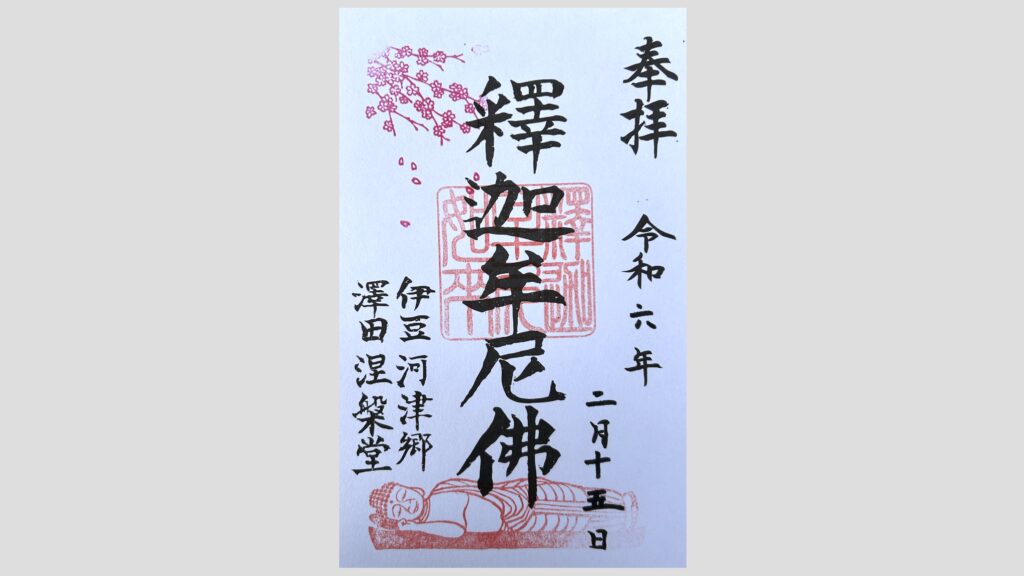 奉拝 令和六年
二月十五日
釋迦牟尼佛
釋迦
牟尼
如来
伊豆河津郷
澤田涅槃堂